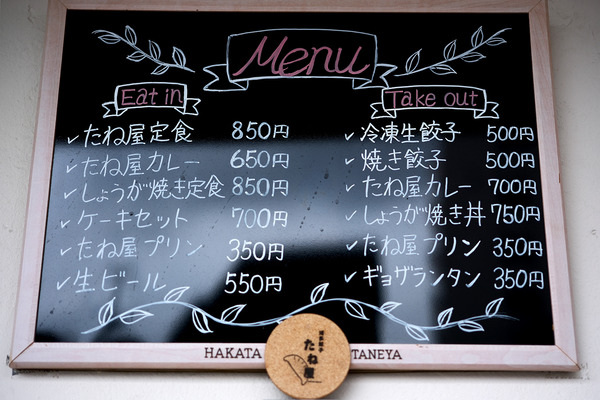 Menu
Eat in
✓たね屋定食 850円
✓たね屋カレー 650円
✓しょうが焼き定食 850円
✓ケーキセット 700円
✓たね屋プリン 350円
✓生ビール 550円
Take out
✓冷凍生餃子 500円
✓焼き餃子 500円
✓たね屋カレー 700円
✓しょうが焼き丼 750円
✓たね屋プリン 350円
✓ギョザランタン 350円
HAKATA TANEYA
たね屋